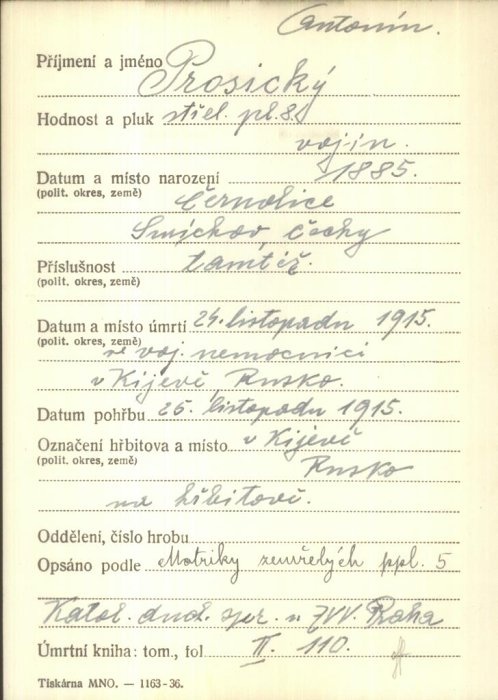 Antonín.
Příjmení a jméno Prosický
Hodnost a pluk střel. pl. 8.
vojín.
Datum a místo narození 1885.
(polit. okres, země) Černolice
Smíchov, Čechy
Příslušnost tamtéž.
(polit. okres, země)
Datum a místo úmrtí 24. listopadu 1915.
(polit. okres, země) ve voj. nemocnici
v Kijevě, Rusko.
Datum pohřbu 25. listopadu 1915.
Označení hřbitova a místo v Kijevě
(polit. okres, země) Rusko
na hřbitově.
Oddělení, číslo hrobu
Opsáno podle Matriky zemřelých ppl. 5
Katol. duch. spr. u ZVV. Praha
Úmrtní kniha: tom., fol II. 110.
Tiskárna MNO. — 1163-36.